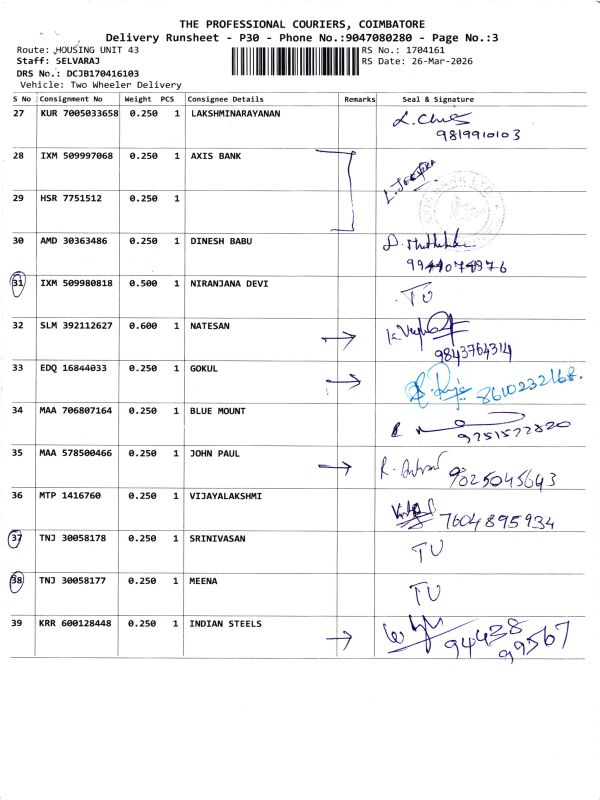 THE PROFESSIONAL COURIERS, COIMBATORE
Delivery Runsheet - P30 - Phone No.:9047080280 - Page No.:3
Route: HOUSING UNIT 43
RS No.: 1704161
Staff: SELVARAJ
RS Date: 26-Mar-2026
DRS No.: DCJB170416103
Vehicle: Two Wheeler Delivery
S No Consignment No Weight PCS Consignee Details Remarks Seal & Signature
27 KUR 7005033658 0.250 1 LAKSHMINARAYANAN
9819910103
28 IXM 509997068 0.250 1 AXIS BANK
29 HSR 7751512 0.250 1
30 AMD 30363486 0.250 1 DINESH BABU
31 IXM 509980818 0.500 1 NIRANJANA DEVI TU
32 SLM 392112627 0.600 1 NATESAN
9843764314
33 EDQ 16844033 0.250 1 GOKUL 8610232168.
34 MAA 706807164 0.250 1 BLUE MOUNT
35 MAA 578500466 0.250 1 JOHN PAUL 9025045643
36 MTP 1416760 0.250 1 VIJAYALAKSHMI 7604895934
37 TNJ 30058178 0.250 1 SRINIVASAN TU
38 TNJ 30058177 0.250 1 MEENA TU
39 KRR 600128448 0.250 1 INDIAN STEELS 94438
99567